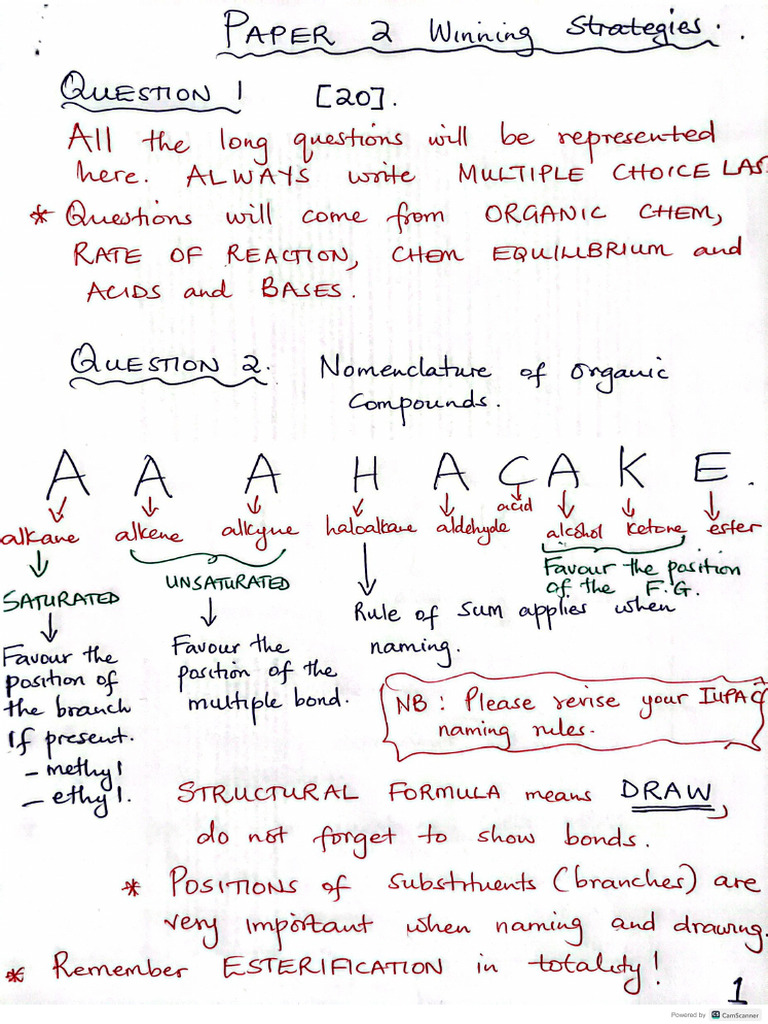 PAPER 2 Winning Strategies.
QUESTION 1 [20].
All the long questions will be represented
here. ALWAYS write MULTIPLE CHOICE LAS
* Questions will come from ORGANIC CHEM,
RATE OF REACTION, CHEM EQUILIBRIUM and
ACIDS and BASES.
QUESTION 2. Nomenclature of organic
Compounds.
A A A H A C A K E.
alkane alkene alkyne haloalkane aldehyde acid alcohol ketone ester
SATURATED
UNSATURATED
Favour the position
of the F.G.
Favour the
position of
the branch
If present.
- methyl
- ethyl.
Favour the
position of the
multiple bond.
Rule of sum applies when
naming.
NB : Please revise your IUPAC
naming rules.
STRUCTURAL FORMULA means DRAW,
do not forget to show bonds.
* POSITIONS of substituents (branches) are
very important when naming and drawing.
* Remember ESTERIFICATION in totality!
1
Powered by CS CamScanner